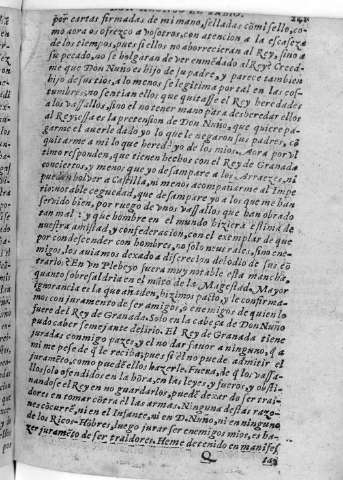 DON ALONSO EL SABIO. 241
por cartas firmadas de mi mano, selladas cō mi sello, co-
mo aora os ofrezco a vosotros, con atencion a la escaseza
de los tiempos, pues si ellos no aborrecieran al Rey, sino a
su pecado, no se holgaran de ver enmēdado al Rey. Creed-
me que Don Nuño es hijo de su padre, y parece tambien
hijo de su tio, a lo menos se legitima por tal en las cos-
tumbres, no sentian ellos que quitasse el Rey heredades
a los vassallos, sino el no tener mano para desheredar ellos
al Rey, essa es la pretension de Don Nuño, que quiere pa-
garme el averle dado yo lo que le negaron sus padres, cō
quitarme a mi lo que heredè yo de los mios. Aora por vl
timo responden, que tienen hechos con el Rey de Granada
conciertos, y menos que yo desampare a los Arraezes, ni
pueden bolver a Castilla, ni menos acompañarme al Impe
rio: notable ceguedad, que desampare yo a los que me han
servido bien, por ruego de vnos vassallos que han obrado
tan mal: y què hombre en el mundo hiziera estima de
nuestra amistad, y confederacion, con el exemplar de que
por condescender con hombres, no solo neutrales, sino ene-
migos, los aviamos dexado a discrecion del odio de sus cō
trarios? En vn Plebeyo fuera muy notable esta mancha,
quanto sobresaldria en el māto de la Magestad. Mayor
ignorancia es la que añaden, hizimos pacto, y le confirma-
mos con juramento de ser amigos, ò enemigos de quien lo
fuere del Rey de Granada. Solo en la cabeça de Don Nuño
pudo caber semejante delirio. El Rey de Granada tiene
juradas conmigo pazes, y el no dar favor a ninguno, q̄ a
mi me pese de q̄ le reciba, pues si èl no puede admitir el
juramēto, como puedē ellos hazerle. Fuera, de q̄ los vassa-
llos solo ofendidos en la hōra, en las leyes, y fueros, y obsti-
nandose el Rey en no guardarlos, puedē dexar de ser trai-
dores en tomar cōtra èl las armas. Ninguna destas razo-
nes cōcurrē, ni en el Infante, ni en D. Nuño, ni en ninguno
de los Ricos-Hōbres, luego jurar ser enemigos mios, es ha-
zer juramēto de ser traidores. Heme detenido en manifes
Q